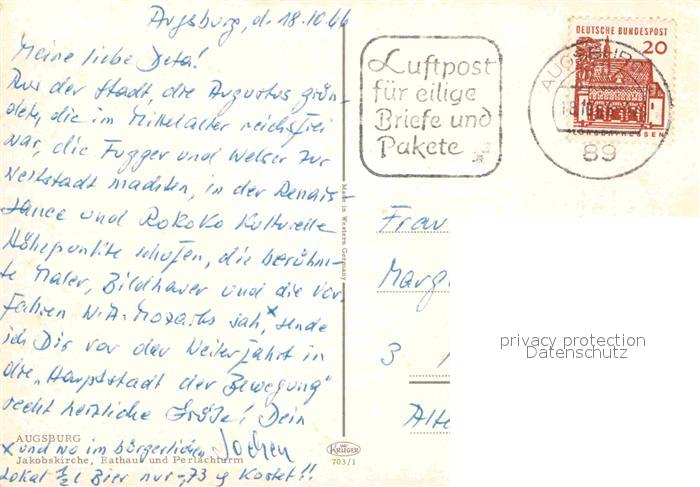 Augsburg, d. 18.10.66
Meine liebe Deta!
Aus der Stadt, die Augustus grün-
dete, die im Mittelalter reichsfrei
war, die Fugger und Welser zur
Weltstadt machten, in der Renais-
sance und Rokoko kulturelle
Höhepunkte schufen, die berühm-
te Maler, Bildhauer und die Vor-
fahren W. A. Mozarts sah,x sende
ich Dir vor der Weiterfahrt in
die „Hauptstadt der Bewegung"
recht herzliche Grüße! Dein
Jochen
x und wo im bürgerlichen
Lokal ½ l Bier nur -,73 kostet!!
AUGSBURG
Jakobskirche, Rathaus und Perlachturm
Made in Western Germany
KRÜGER
703/1
Luftpost
für eilige
Briefe und
Pakete
AUGSBURG
18.10.
89
DEUTSCHE BUNDESPOST
20
LORSCH/HESSEN
Frau
Marg
3
Alte
privacy protection
Datenschutz